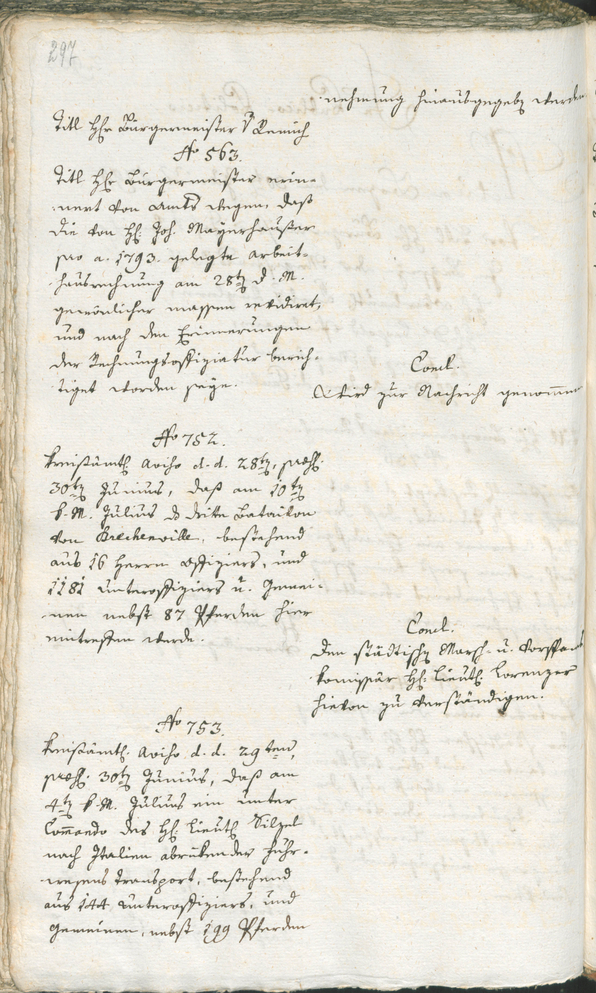 297
nehmung hinausgegeb werden
Titl Hr Bürgermeister v Remich
No 563.
Titl Hr Bürgermeister erin-
nert von Amts wegen, daß
die von H. Joh. Mayerhauser
pro a. 1793. gelegte Arbeit-
hausrechnung am 28t d. M.
gewönlicher massen revidiret,
und nach den Erinnerungen
der Rechnungsoffiziatur berich-
tiget worden seye.
Concl.
Wird zur Nachricht genommen
No 752.
Kreisämtl. Aviso d. d. 28t, praes.
30t Junius, daß am 10t
k. M. Julius das dritte Bataillon
von Brechenville, bestehend
aus 16 Herrn Offiziers, und
1181 Unteroffiziers u. Gemei-
nen nebst 87 Pferden hier
eintreffen werde.
Concl.
Den städtisch Marsch- u. Vorspanns
komissär H. Lieut. Lorenzer
hievon zu verständigen.
No 753.
Kreisämtl. Aviso d. d. 29ten,
praes. 30t Junius, daß am
4t k. M. Julius ein unter
Comando des H. Lieut.
nach Italien abrükender Fuhr-
wesens Transport, bestehend
aus 144 Unteroffiziers, und
Gemeinen, nebst 199 Pferden